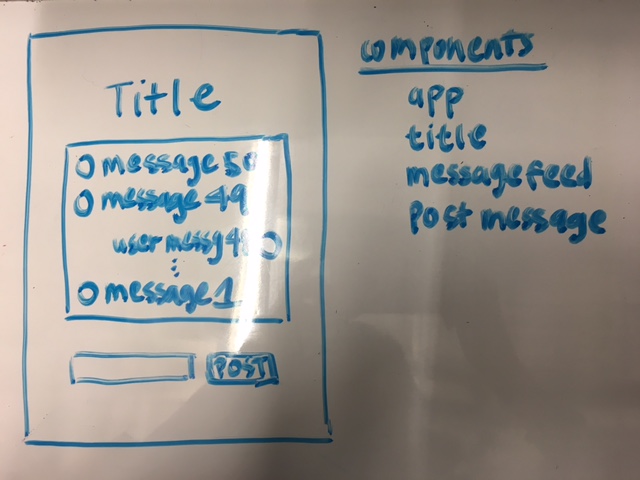 Title
message 50
message 49
user messg 48
message 1
POST
components
app
title
messagefeed
post message